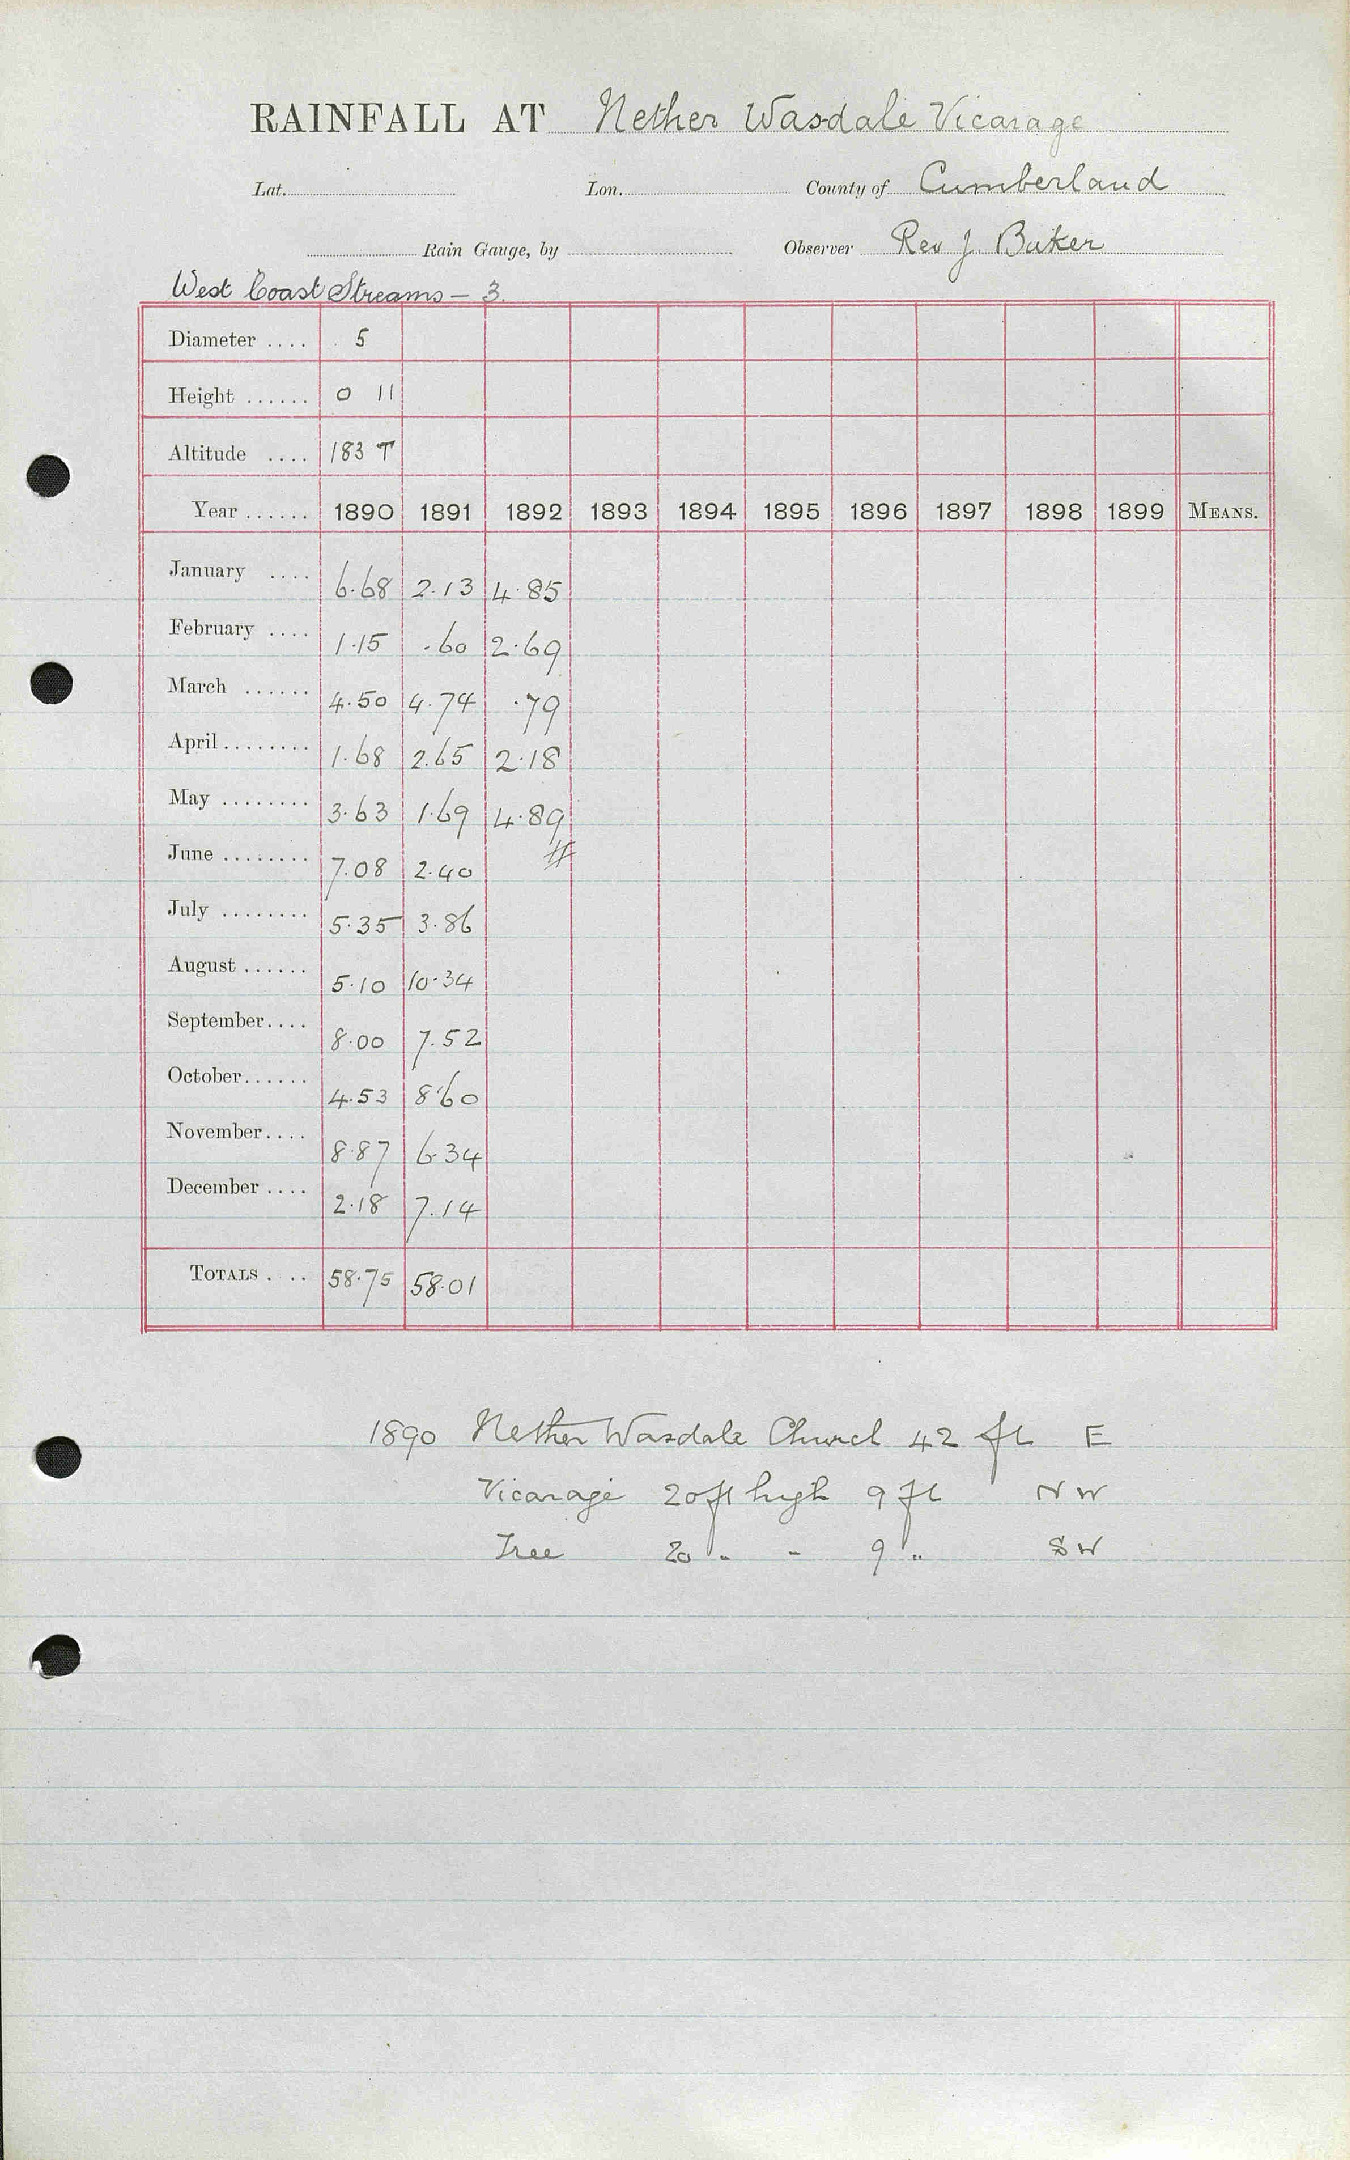 RAINFALL AT Nether Wasdale Vicarage
Lat. Lon. County of Cumberland
Rain Gauge, by Observer Rev J. Baker
West Coast Streams – 3
Diameter .... 5
Height ...... 0 11
Altitude .... 183 T
Year ...... 1890 1891 1892 1893 1894 1895 1896 1897 1898 1899 MEANS.
January .... 6.68 2.13 4.85
February .... 1.15 .60 2.69
March ...... 4.50 4.74 .79
April ........ 1.68 2.65 2.18
May ........ 3.63 1.69 4.89
June ........ 7.08 2.40 #
July ........ 5.35 3.86
August ...... 5.10 10.34
September.... 8.00 7.52
October...... 4.53 8.60
November.... 8.87 6.34
December .... 2.18 7.14
TOTALS . .. 58.75 58.01
1890 Nether Wasdale Church 42 ft E
Vicarage 20 ft high 9 ft NW
Tree 20 " " 9 " SW